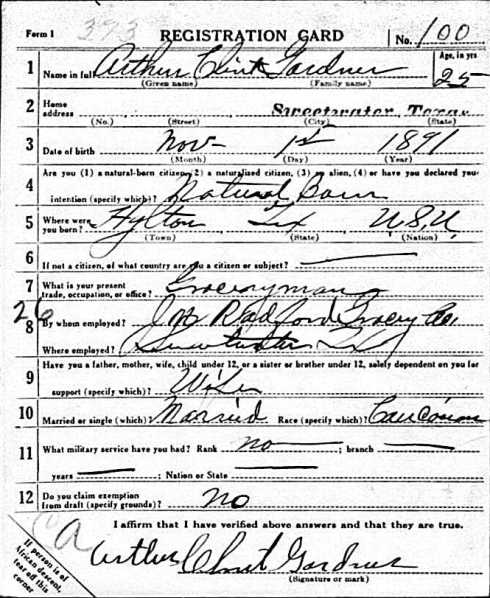 Form 1 373 REGISTRATION CARD No. 100
1 Name in full Arthur Clint Gardner Age, in yrs 25
(Given name) (Family name)
2 Home address Sweetwater, Texas
(No.) (Street) (City) (State)
3 Date of birth Nov- 1st 1891
(Month) (Day) (Year)
Are you (1) a natural-born citizen, (2) a naturalized citizen, (3) an alien, (4) or have you declared your
4 intention (specify which)? Natural Born
5 Where were you born? Hylton Tex U.S.A.
(Town) (State) (Nation)
6 If not a citizen, of what country are you a citizen or subject?
7 What is your present trade, occupation, or office? Groceryman
26
8 By whom employed? Radford Grocery Co.
Where employed? Sweetwater Tex
Have you a father, mother, wife, child under 12, or a sister or brother under 12, solely dependent on you for
9 support (specify which)? Wife
10 Married or single (which)? Married Race (specify which)? Caucasian
11 What military service have you had? Rank no ; branch
years ; Nation or State
12 Do you claim exemption from draft (specify grounds)? No
I affirm that I have verified above answers and that they are true.
Arthur Clint Gardner
(Signature or mark)
If person is of
African descent,
tear off this
corner